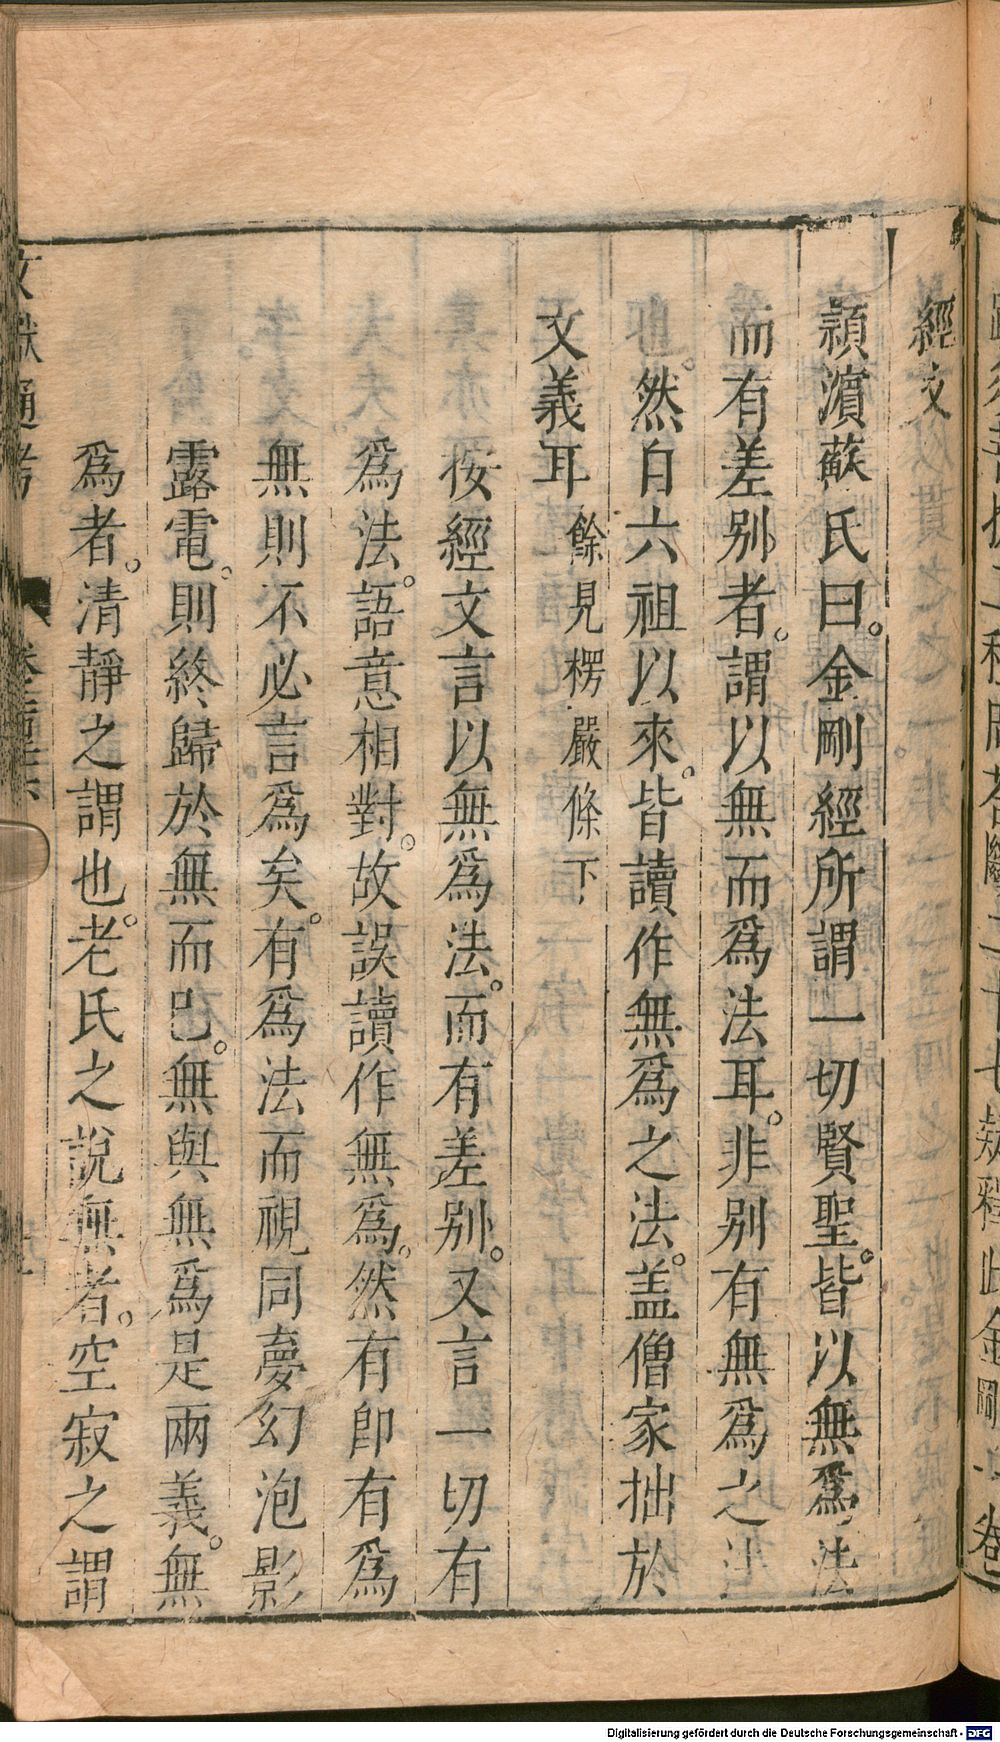 經文
頴濵蘇氏曰。金剛經所謂一切賢聖。皆以無爲法
而有差别者。謂以無而爲法耳。非别有無爲之法
也。然自六祖以來。皆讀作無爲之法。盖僧家拙於
文義耳餘見楞嚴條下
按經文言以無爲法。而有差别。又言一切有
爲法。語意相對。故誤讀作無爲。然有即有爲
無則不必言爲矣。有爲法而視同夢幻泡影
露電。則終歸於無而已。無與無爲是兩義。無
爲者。清靜之謂也。老氏之說無者。空寂之謂
文獻通考
Digitalisierung gefördert durch die Deutsche Forschungsgemeinschaft - DFG